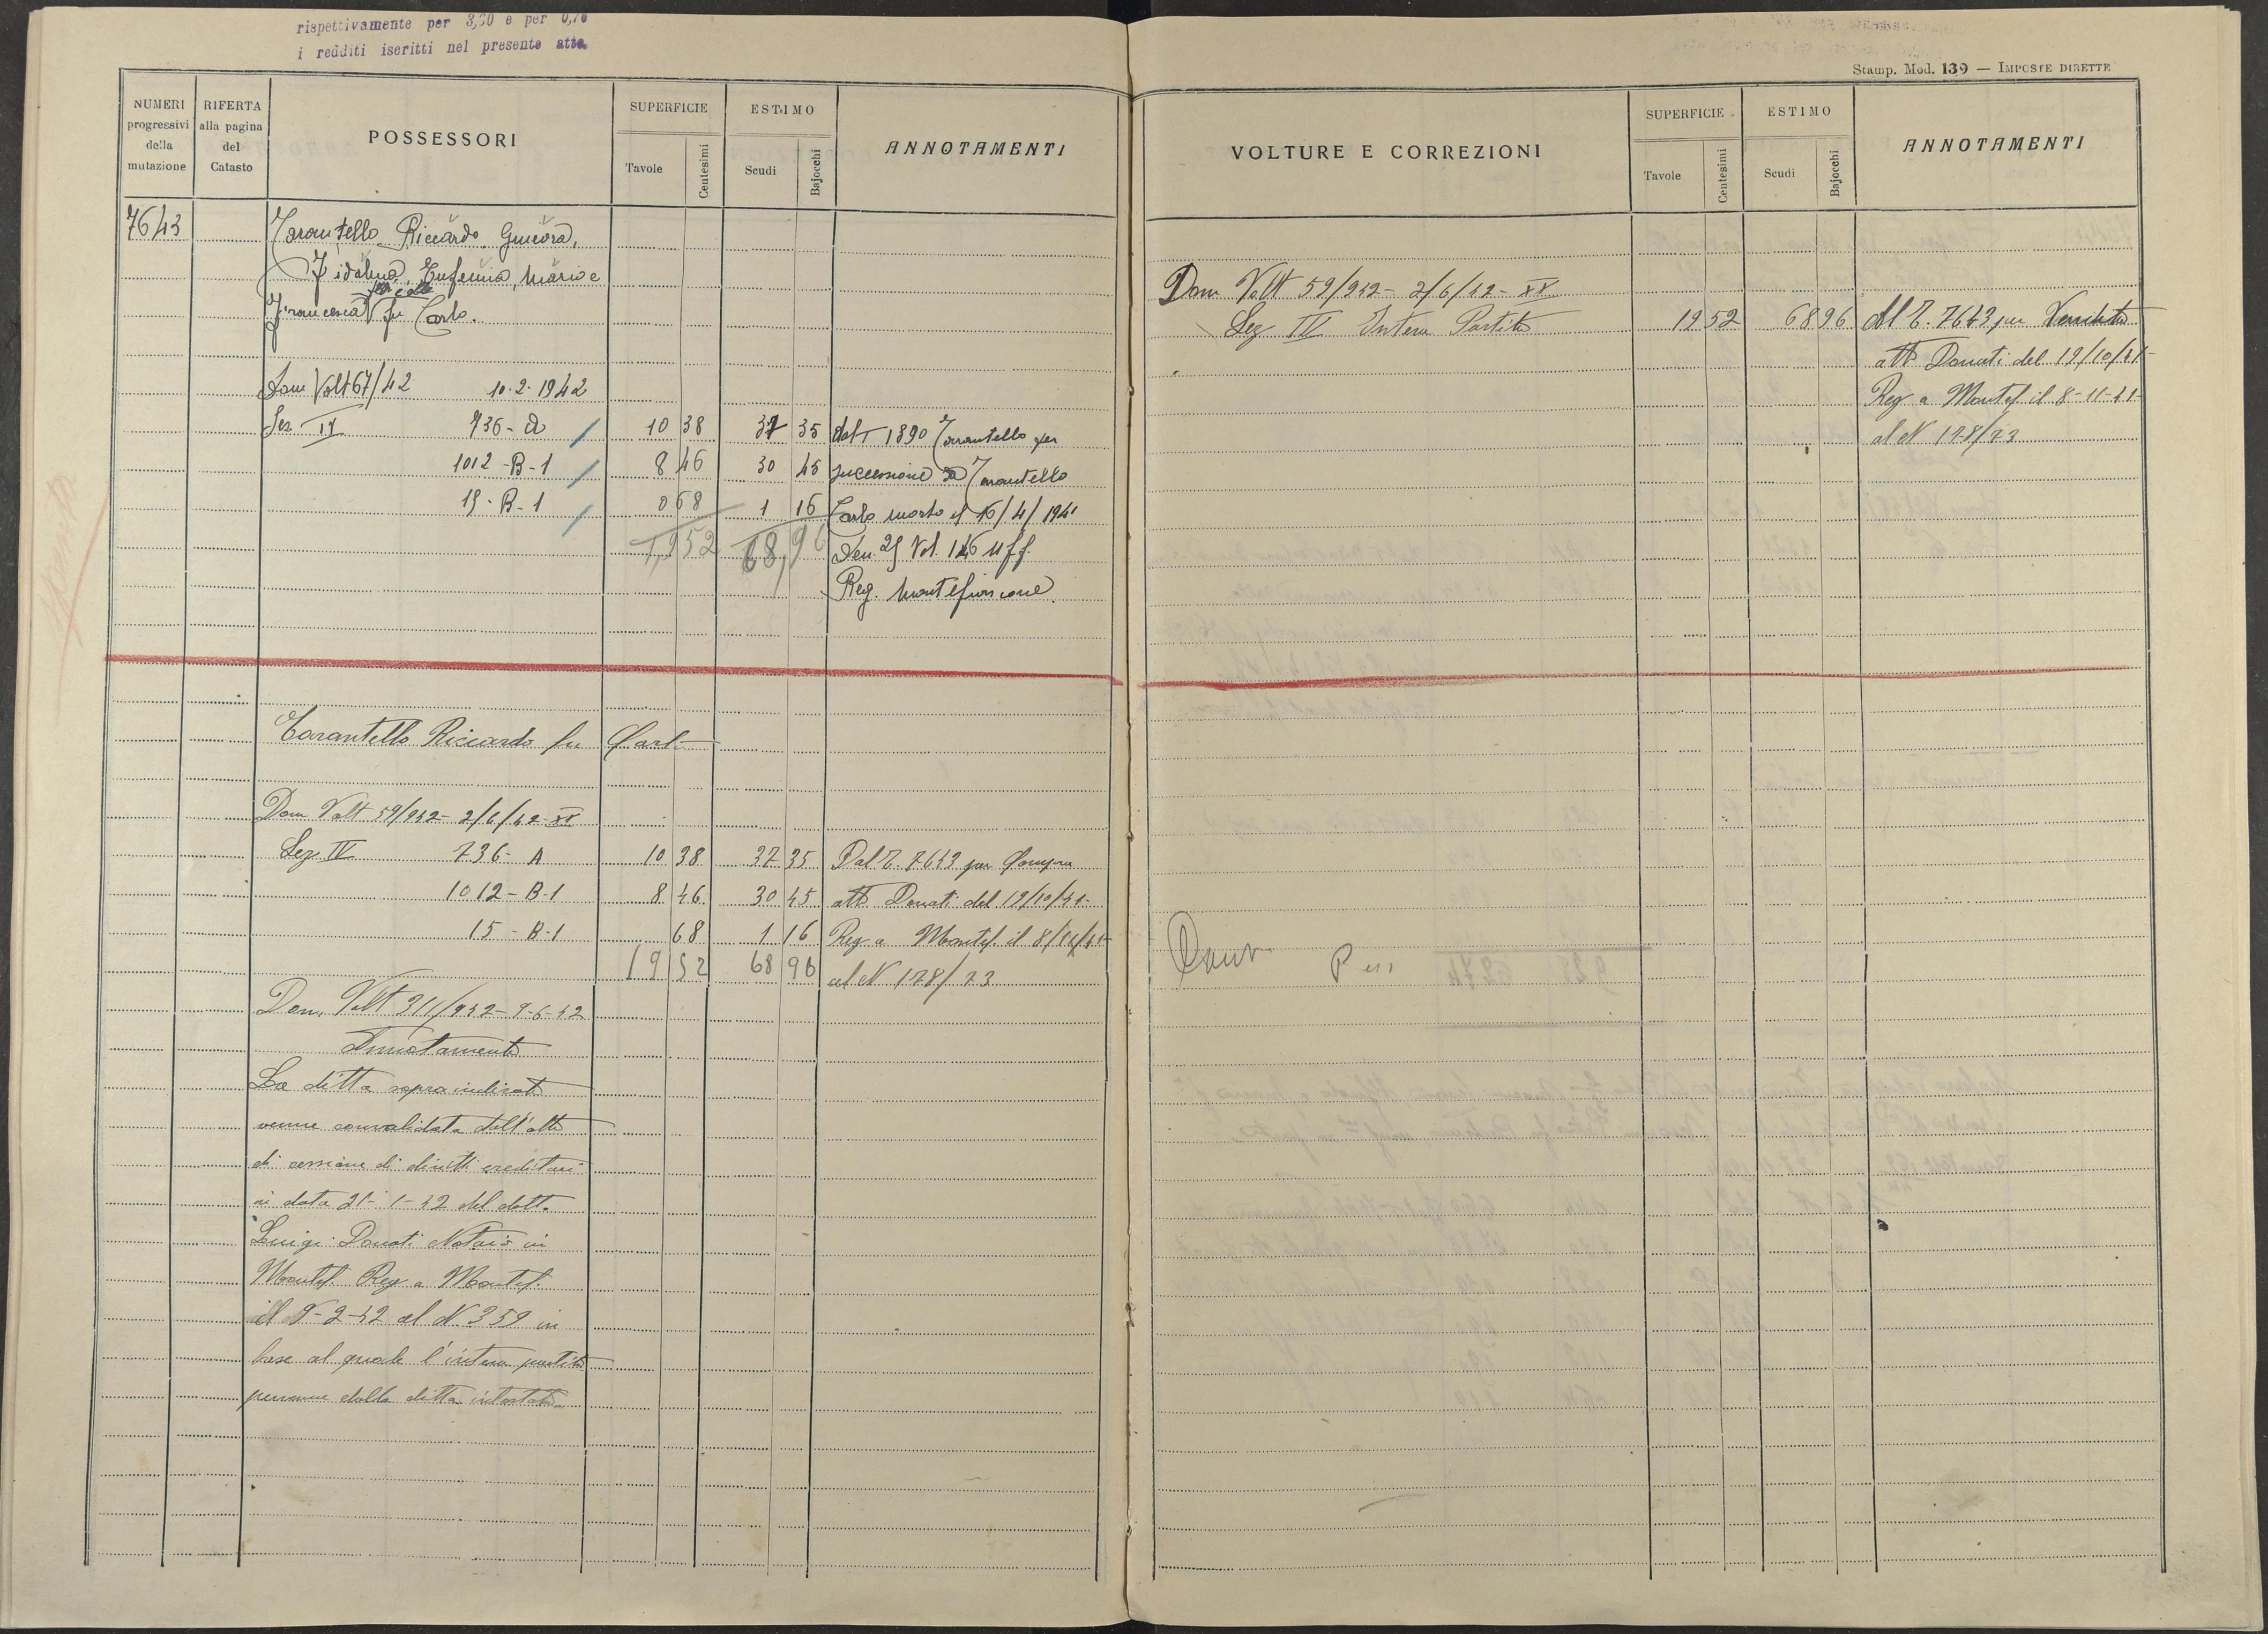 rispettivamente per 3,30 e per 0,70
i redditi iscritti nel presente atto.
NUMERI progressivi della mutazione
RIFERTA alla pagina del Catasto
POSSESSORI
SUPERFICIE
Tavole
Centesimi
ESTIMO
Scudi
Bajocchi
ANNOTAMENTI
7643
Tarantello Riccardo, Ginevra,
Eufemia, Mario e
Francesca fu Carlo.
Dom Volt 67/42 10-2-1942
Sez IV 736-A 10 38 37 35 dal T 1890 Tarantello per
1012-B-1 8 46 30 45 successione da Tarantello
15-B-1 0 68 1 16 Carlo morto il 16/4/1941
19,52 68,96 Den. 25 Vol. 146 uff.
Reg. Montefiascone.
Tarantello Riccardo fu Carlo
Dom Volt 59/942 - 2/6/42-XX
Sez IV 736-A 10 38 37 35 Dal T. 7643 per Compra
1012-B-1 8 46 30 45 atto Donati del 19/10/41-
15-B-1 68 1 16 Reg a Montef. il 8/11/41-
19 52 68 96 al N 178/73
Dom. Volt 311/942 - 9-6-42
Annotamento
La ditta sopra indicata
venne convalidata dall'atto
di cessione di diritti ereditari
in data 21-1-42 del dott.
Luigi Donati Notaio in
Montef. Reg a Montef.
il 9-2-42 al N. 359 in
base al quale l'intera partita
pervenne dalla ditta intestata.
Stamp. Mod. 139 — IMPOSTE DIRETTE
VOLTURE E CORREZIONI
SUPERFICIE
Tavole
Centesimi
ESTIMO
Scudi
Bajocchi
ANNOTAMENTI
Dom Volt 59/942 - 2/6/42-XX
Sez IV Intera Partita 19 52 68 96 Al T. 7643 per Vendita
atto Donati del 19/10/41-
Reg a Montef il 8-11-41-
al N 178/73